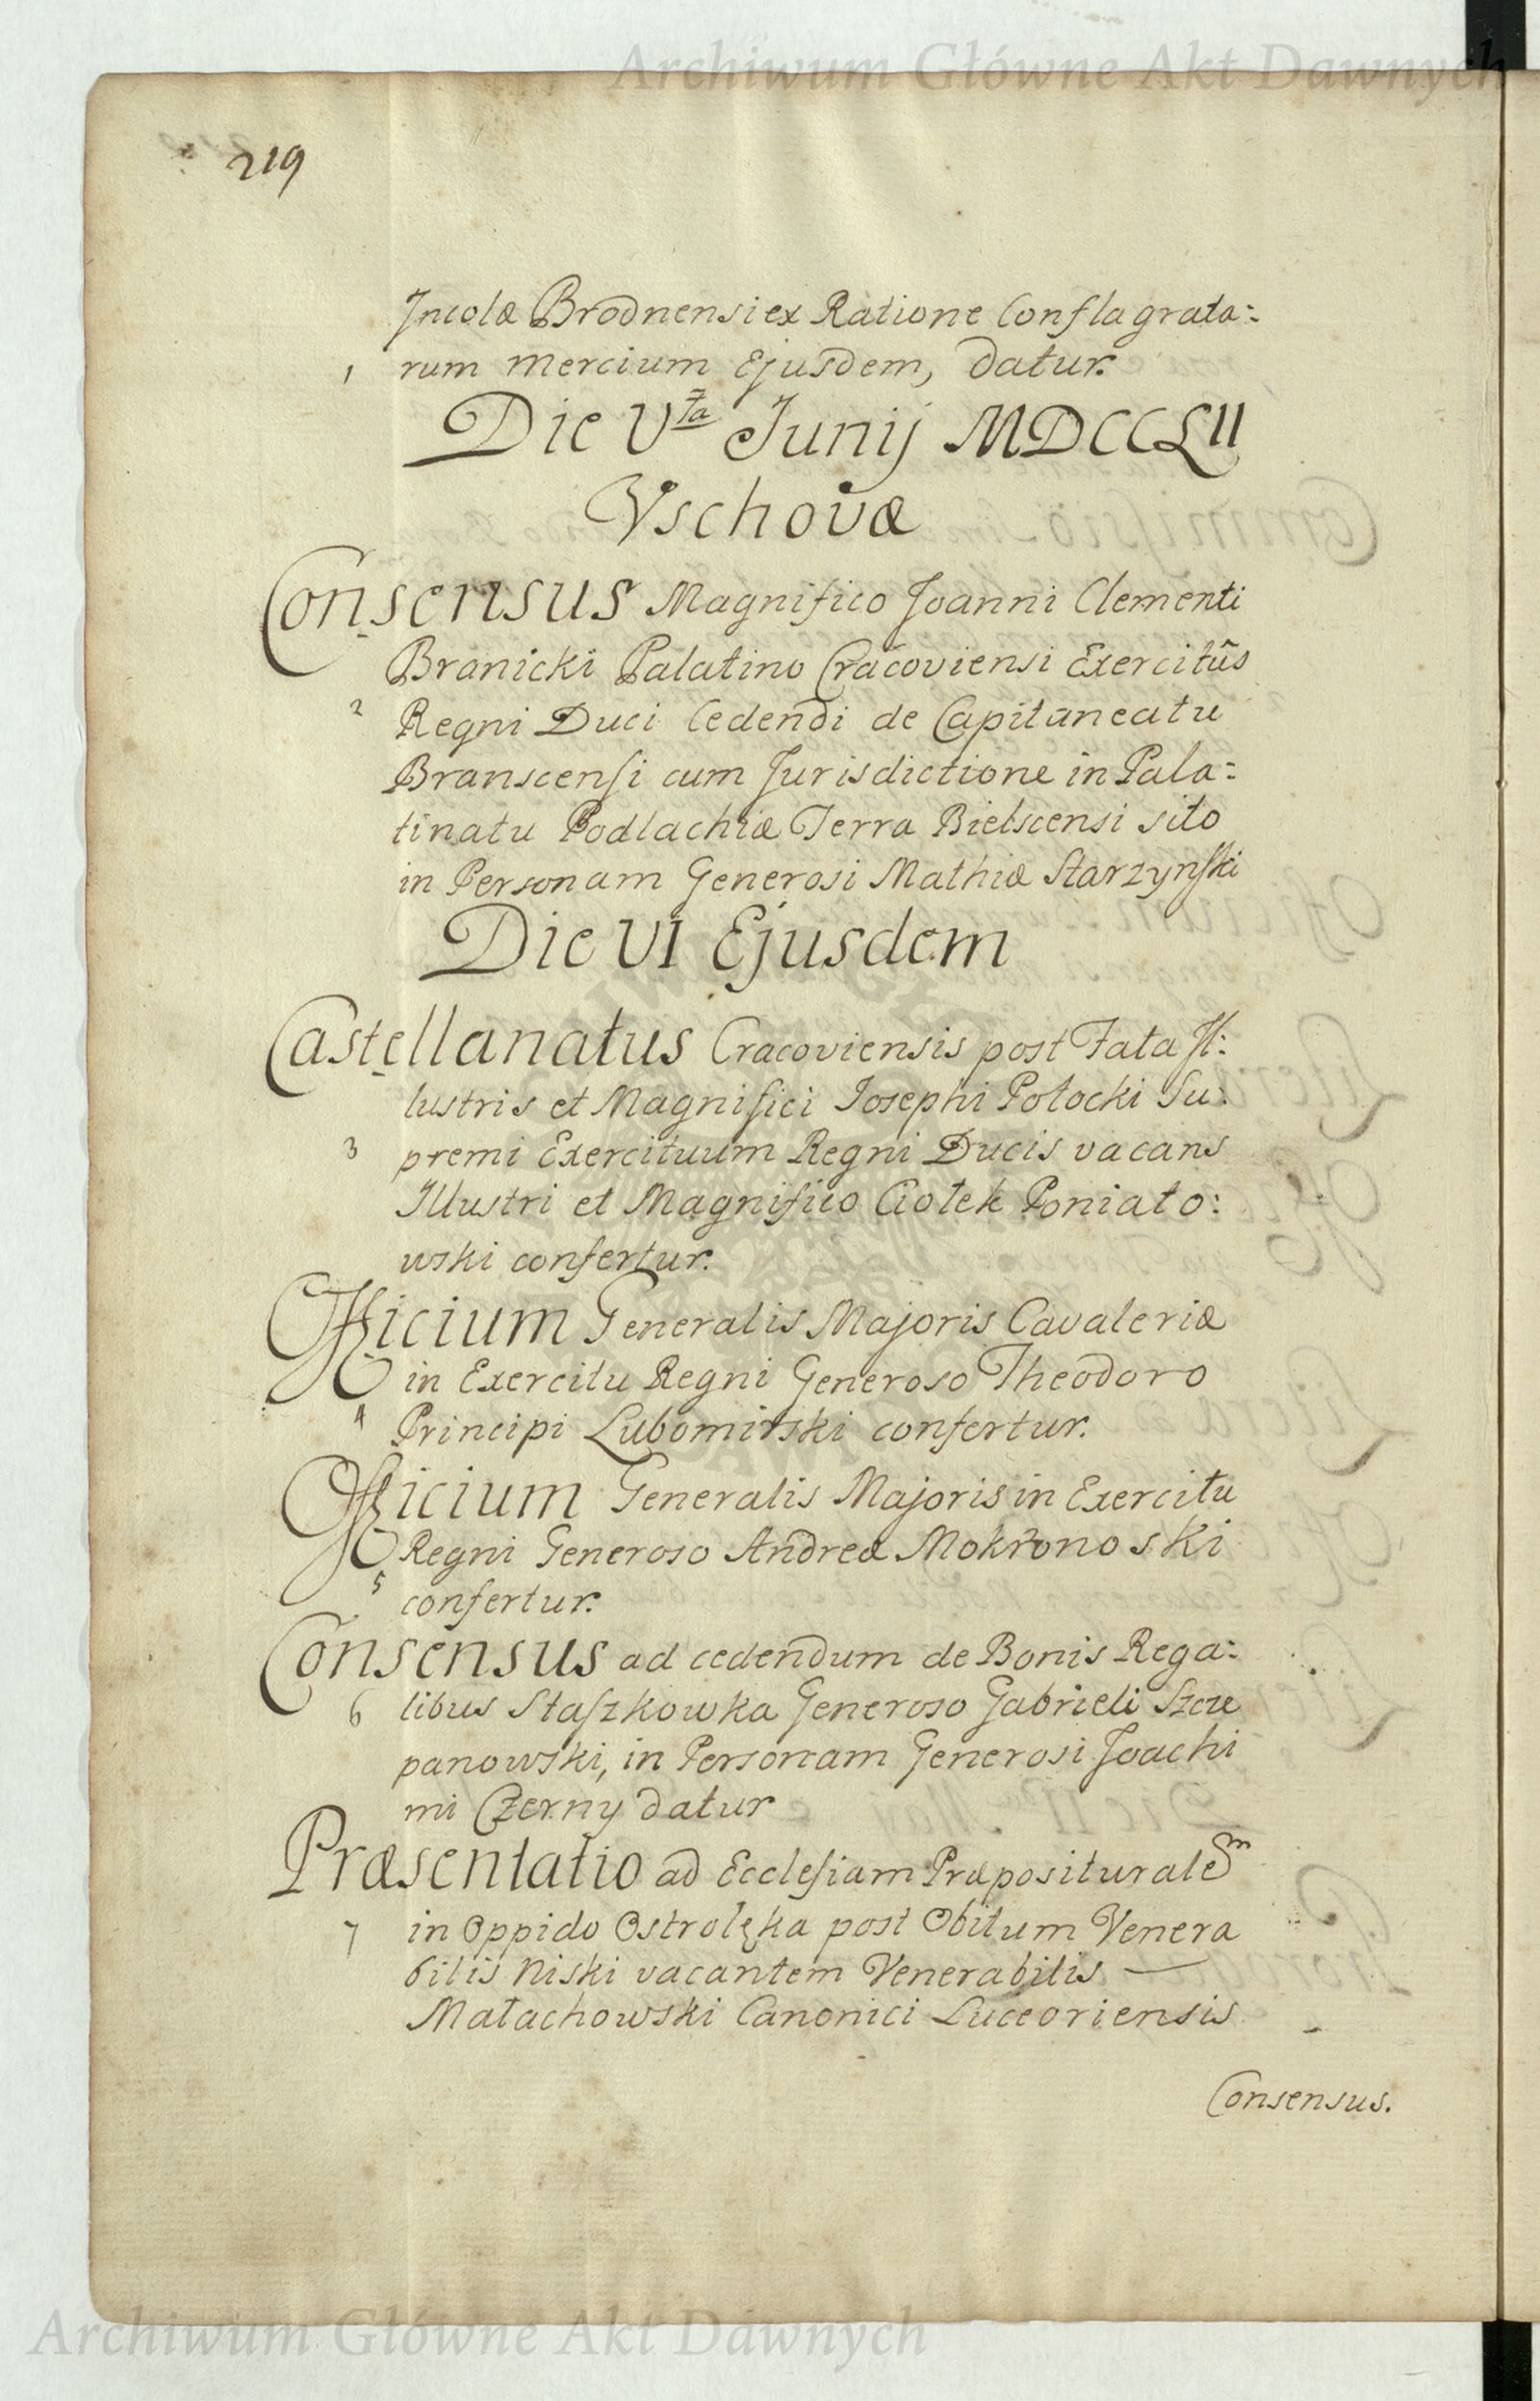 Archiwum Główne Akt Dawnych
219
Incolæ Brodnensi ex Ratione Conflagrata:
1 rum mercium Ejusdem, datur.
Die Vta Junij MDCCLII
Vschovæ
Consensus Magnifico Joanni Clementi
Branicki Palatino Cracoviensi Exercitûs
2 Regni Duci Cedendi de Capitaneatu
Branscensi cum Jurisdictione in Pala:
tinatu Podlachiæ Terra Bielscensi sito
in Personam Generosi Mathiæ Starzynski
Die VI Ejusdem
Castellanatus Cracoviensis post Fata Il:
lustris et Magnifici Josephi Potocki Su:
3 premi Exercituum Regni Ducis vacans
Illustri et Magnifico Ciołek Poniato:
wski confertur.
Officium Generalis Majoris Cavaleriæ
in Exercitu Regni Generoso Theodoro
4 Principi Lubomirski confertur.
Officium Generalis Majoris in Exercitu
Regni Generoso Andreæ Mokronoski
5 confertur.
Consensus ad cedendum de Bonis Rega:
6 libus Staszkowka Generoso Gabrieli Szcze
panowski, in Personam Generosi Joachi
mi Czerny datur
Præsentatio ad Ecclesiam Præposituralem
7 in Oppido Ostrolęka post Obitum Venera
bilis Niski vacantem Venerabilis —
Małachowski Canonici Luceoriensis
Consensus.
Archiwum Główne Akt Dawnych